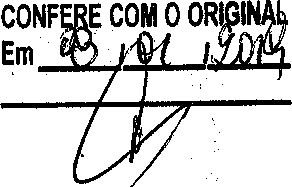 CONFERE COM O ORIGINAL
Em / 01 / 2019